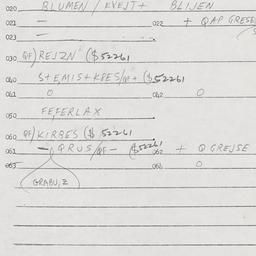 020 BLUMEN / KVEJT+ BLIJEN
021 — 022 + QAP GRESE
023 —
030 QF) REJZN ($52261
040 S+EMIS+KRES/QF+ ($52261
061 0 062 0
050 FEFERLAX
060 QF) KIRBES ($52261
061 — QRUS/QF— ($52261 062 + QGREJSE
063 061 0
GRABU,Z